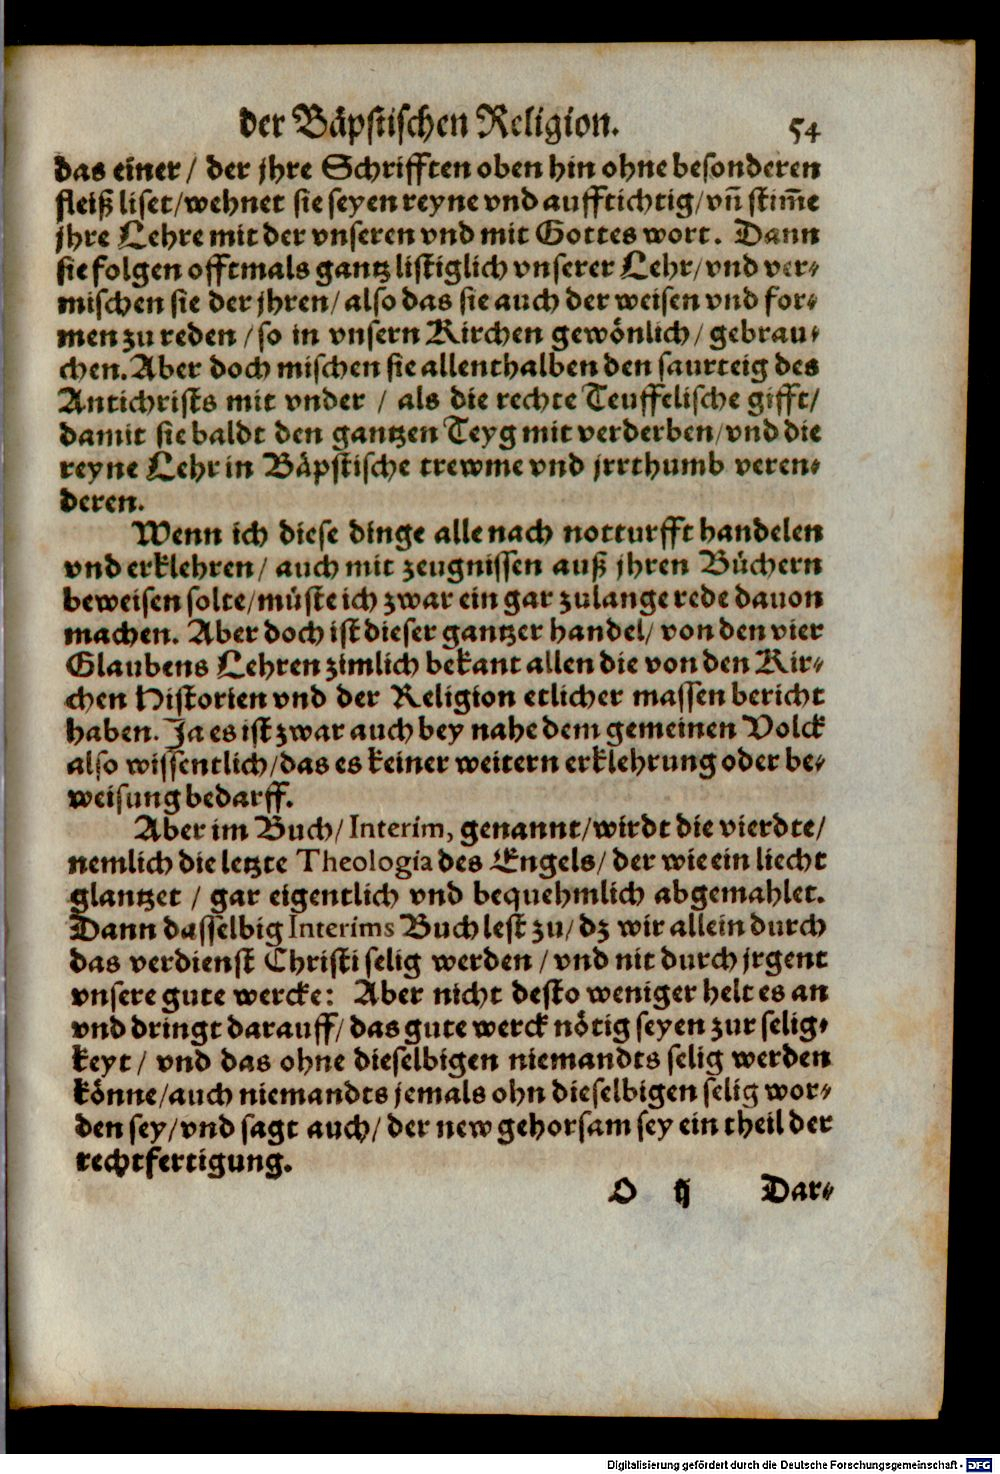 der Bäpstischen Religion. 54
das einer / der jhre Schrifften oben hin ohne besonderen
fleiß liset/wehnet sie seyen reyne vnd aufftichtig/vn̄ stim̄e
jhre Lehre mit der vnseren vnd mit Gottes wort. Dann
sie folgen offtmals gantz listiglich vnserer Lehr/vnd ver-
mischen sie der jhren/also das sie auch der weisen vnd for-
men zu reden /so in vnsern Kirchen gewönlich/gebrau-
chen. Aber doch mischen sie allenthalben den saurteig des
Antichrists mit vnder / als die rechte Teuffelische gifft/
damit sie baldt den gantzen Teyg mit verderben/vnd die
reyne Lehr in Bäpstische trewme vnd jrrthumb veren-
deren.
Wenn ich diese dinge alle nach notturfft handelen
vnd erklehren/ auch mit zeugnissen auß jhren Büchern
beweisen solte/müste ich zwar ein gar zulange rede dauon
machen. Aber doch ist dieser gantzer handel/ von den vier
Glaubens Lehren zimlich bekant allen die von den Kir-
chen Historien vnd der Religion etlicher massen bericht
haben. Ja es ist zwar auch bey nahe dem gemeinen Volck
also wissentlich/das es keiner weitern erklehrung oder be-
weisung bedarff.
Aber im Buch/Interim, genannt/wirdt die vierdte/
nemlich die letzte Theologia des Engels/der wie ein liecht
glantzet / gar eigentlich vnd bequehmlich abgemahlet.
Dann dasselbig Interims Buch lest zu/dz wir allein durch
das verdienst Christi selig werden /vnd nit durch jrgent
vnsere gute wercke: Aber nicht desto weniger helt es an
vnd dringt darauff/das gute werck nötig seyen zur selig-
keyt/ vnd das ohne dieselbigen niemandts selig werden
könne/auch niemandts jemals ohn dieselbigen selig wor-
den sey/vnd sagt auch/ der new gehorsam sey ein theil der
rechtfertigung.
O ij Dar-
Digitalisierung gefördert durch die Deutsche Forschungsgemeinschaft - DFG